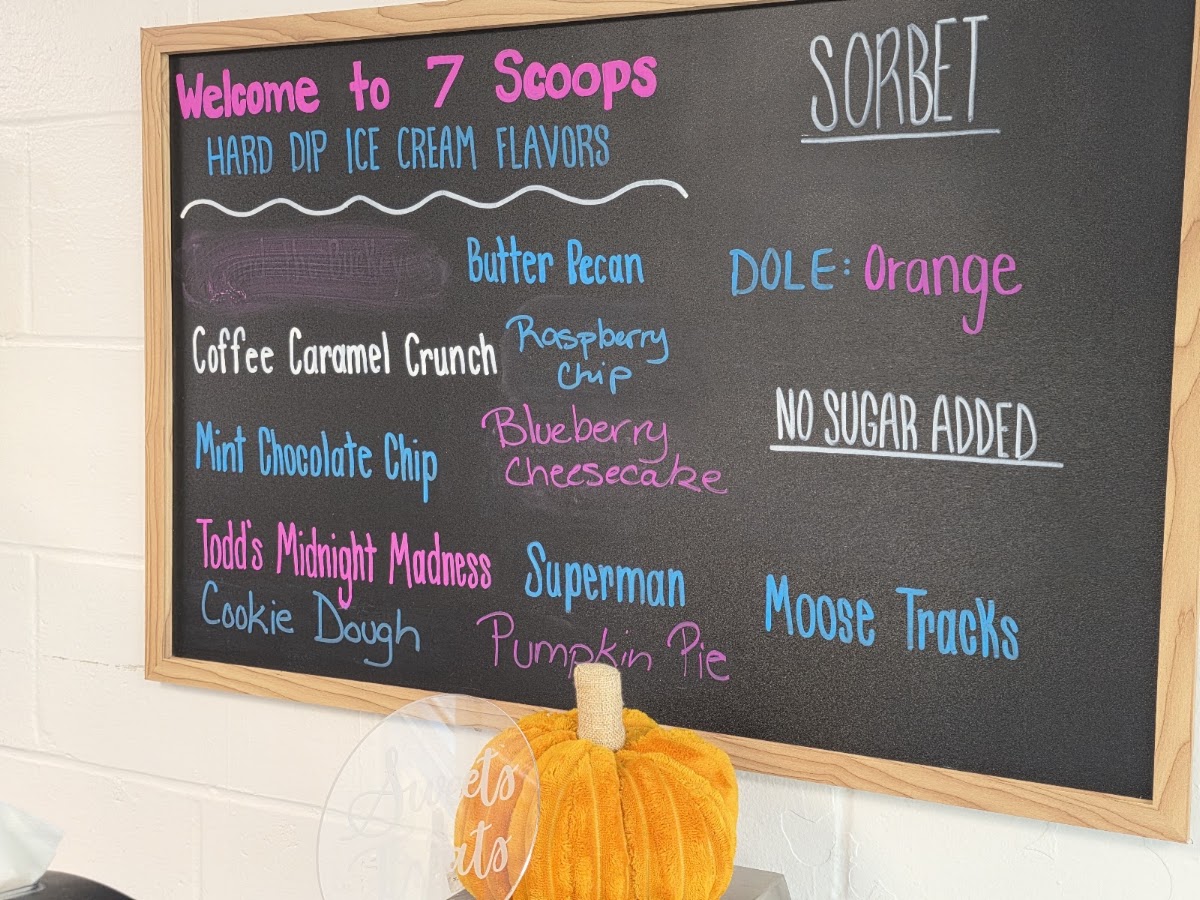 Welcome to 7 Scoops
HARD DIP ICE CREAM FLAVORS
Butter Pecan
Coffee Caramel Crunch
Raspberry
Chip
Mint Chocolate Chip
Blueberry
Cheesecake
Todd's Midnight Madness
Superman
Cookie Dough
Pumpkin Pie
SORBET
DOLE: Orange
NO SUGAR ADDED
Moose Tracks
Sweets